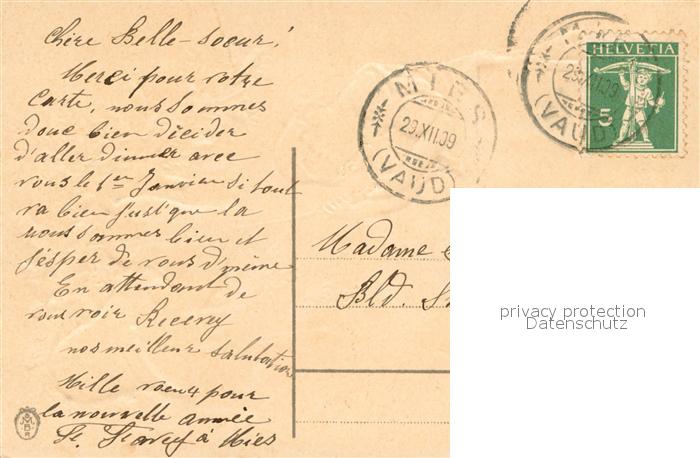 Chère Belle-soeur!
Merci pour votre
carte, nous sommes
donc bien décider
d'aller dinner avec
vous le 1er Janvier si tout
va bien jusque la
nous sommes bien et
j'éspér de vous d'même
En attendant de
vous voir Recevez
nos meilleur salutation
Mille voeux pour
la nouvelle année
à Mies
MIES
29.XII.09
(VAUD)
HELVETIA
5
MIES
29.XII.09
(VAUD)
Madame
Bld.
privacy protection
Datenschutz